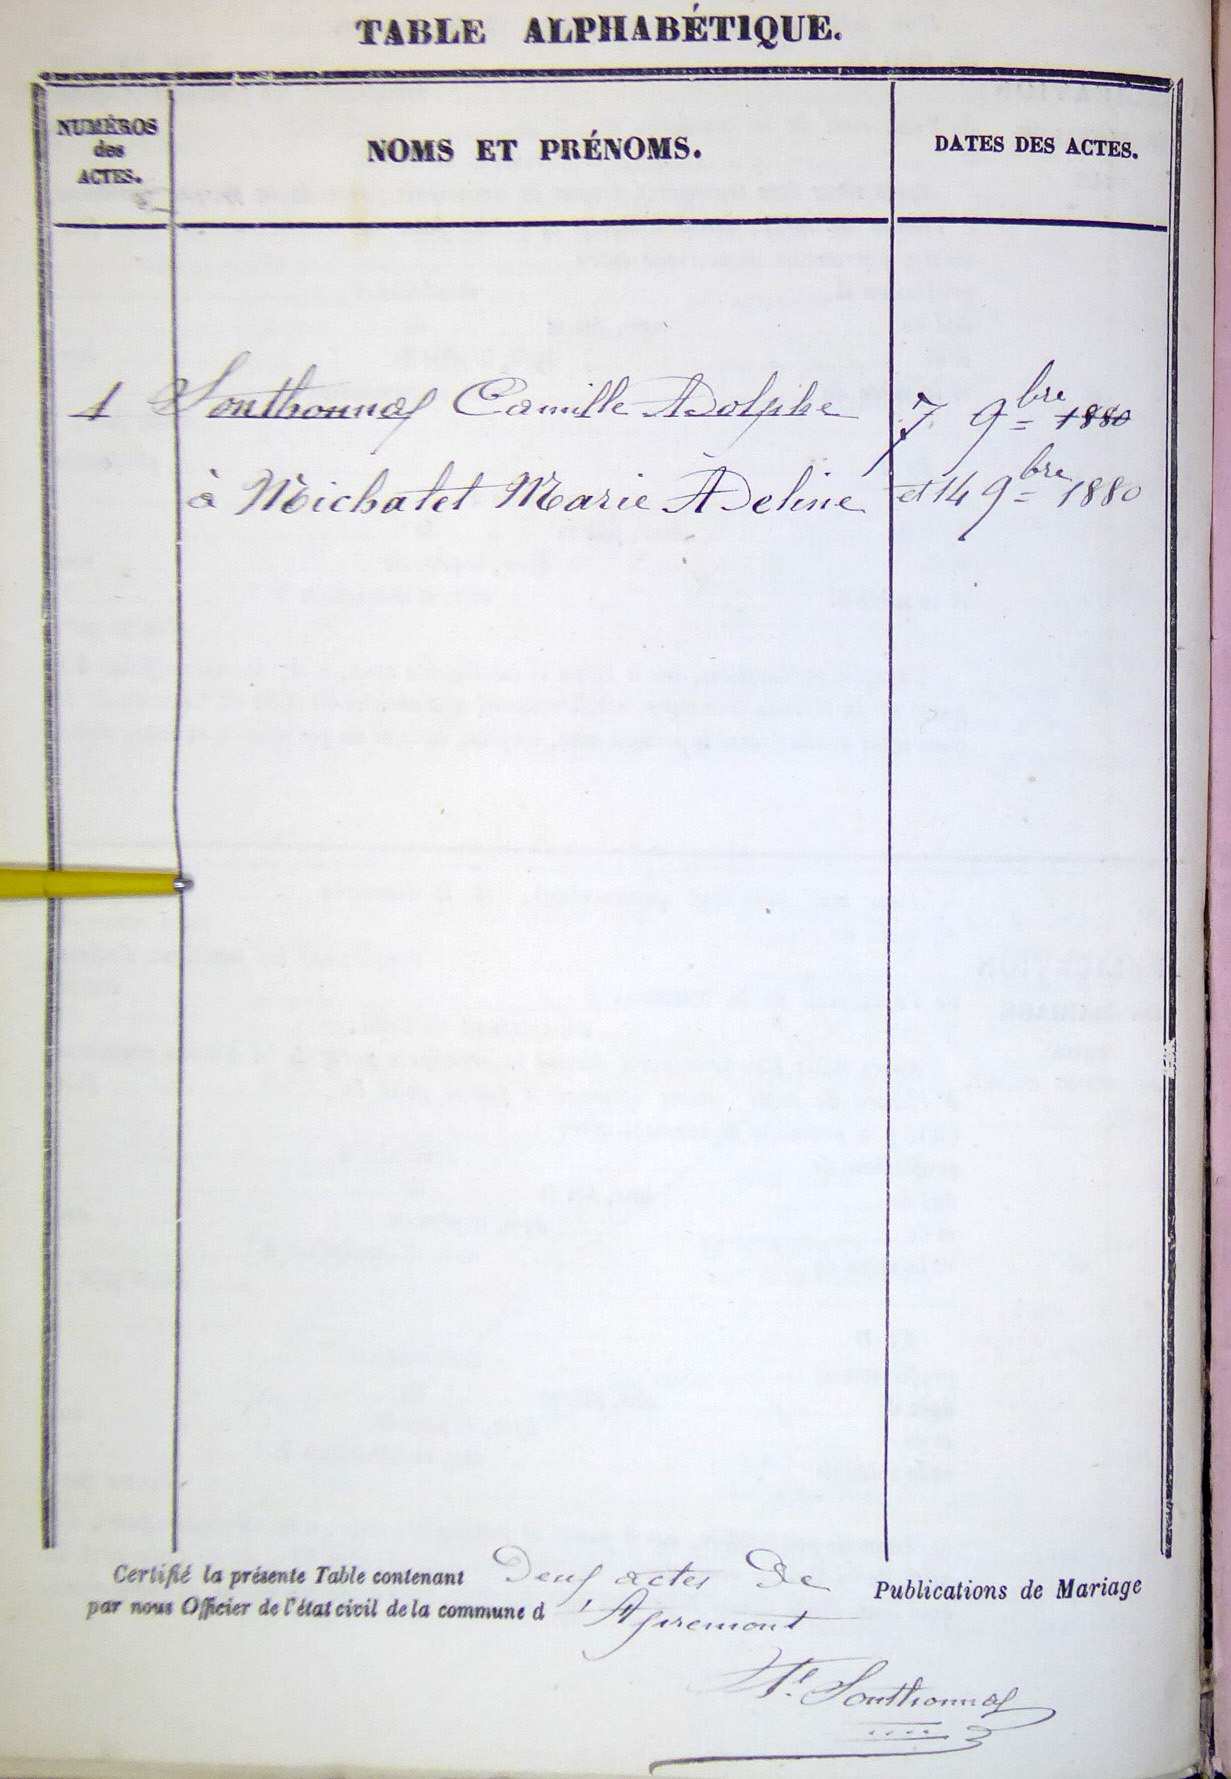 TABLE ALPHABÉTIQUE.
NUMÉROS
des
ACTES.
NOMS ET PRÉNOMS.
DATES DES ACTES.
1 Sonthonnax Camille Adolphe 7 9bre 1880
à Michalet Marie Adeline et 14 9bre 1880
Certifié la présente Table contenant Deux actes De Publications de Mariage
par nous Officier de l'état civil de la commune d'Apremont
Sonthonnax